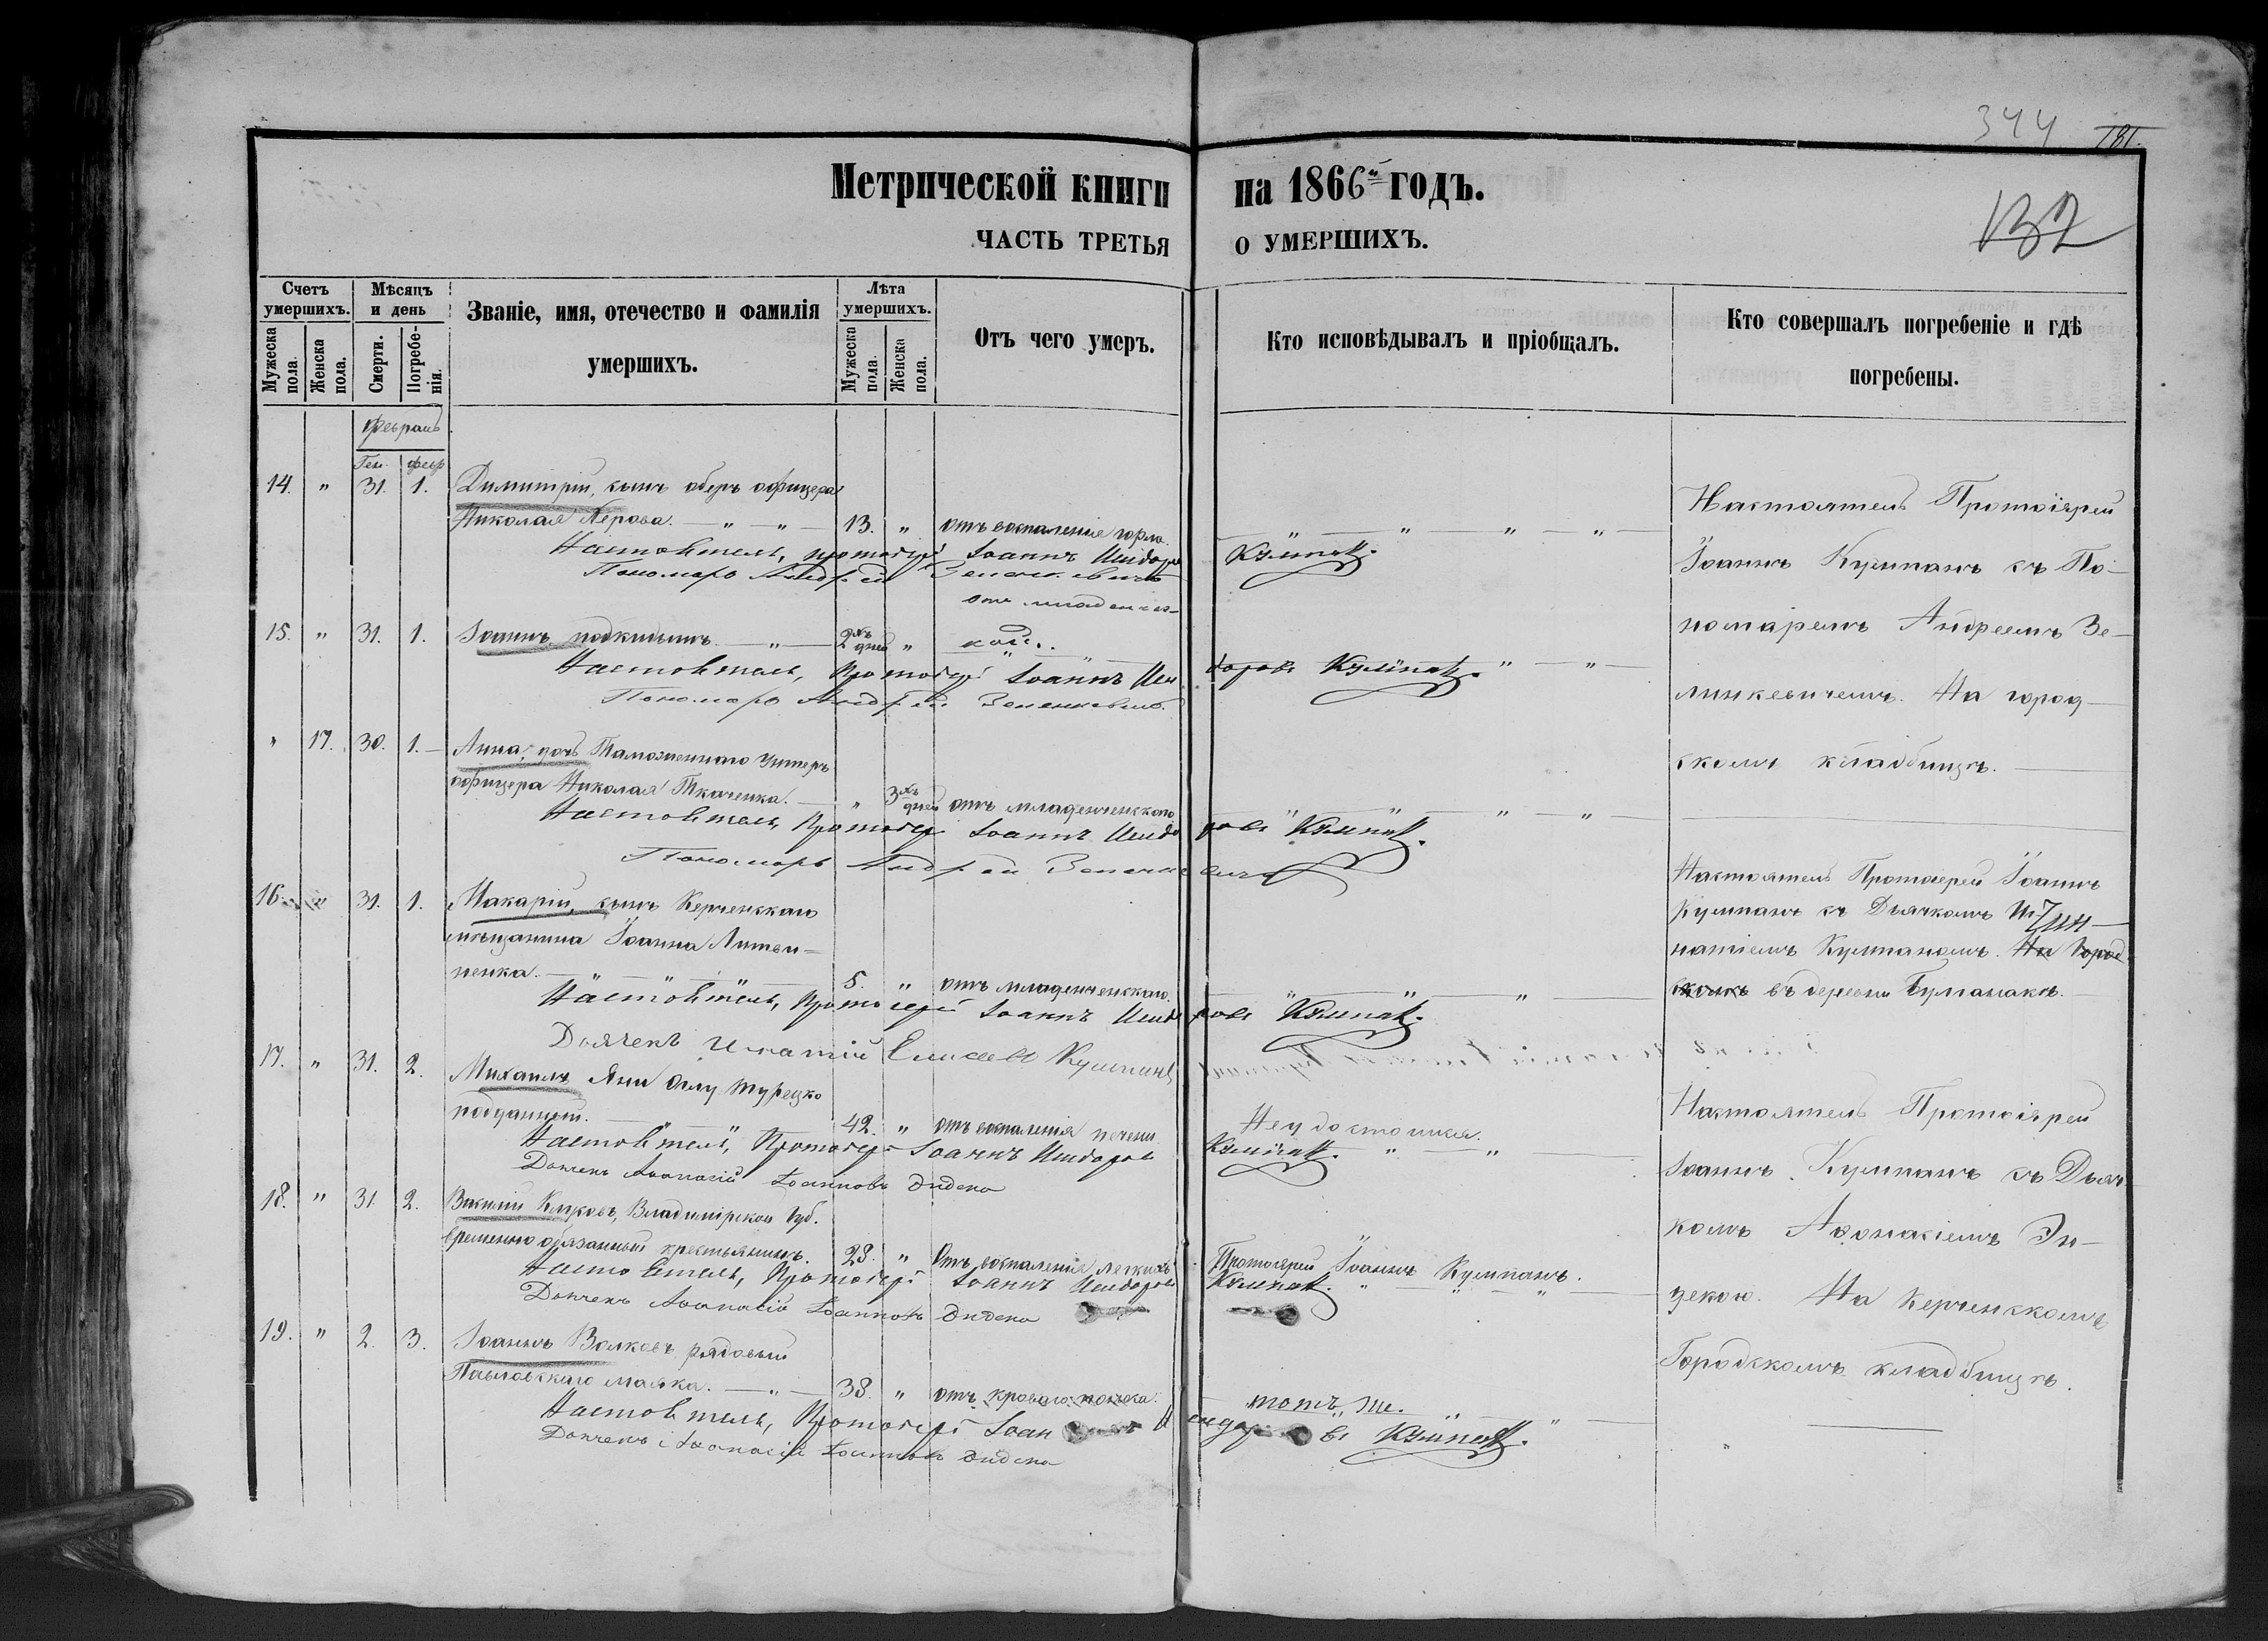 344 181.
132
Метрической книги на 1866й годъ.
ЧАСТЬ ТРЕТЬЯ О УМЕРШИХЪ.
Счетъ умершихъ.
Мужеска пола.
Женска пола.
Мѣсяцъ и день
Смерти.
Погребенія.
Званіе, имя, отечество и фамилія
умершихъ.
Лѣта умершихъ.
Мужеска пола.
Женска пола.
Отъ чего умеръ.
Кто исповѣдывалъ и пріобщалъ.
Кто совершалъ погребеніе и гдѣ
погребены.
Февраль
Ген. февр
14. " 31. 1. Димитрій, сынъ оберъ офицера
Николая 13. " отъ воспаленія горла
Настоятель, протоіерей Іоаннъ Исидоровъ Кумпанъ.
Пономарь Андрей Зеленкевичъ
15. " 31. 1. Іоаннъ подкидышъ. 2хъ дней " отъ младенческой.
Настоятель, Протоіерей Іоаннъ Исидоровъ Кумпанъ.
Пономарь Андрей Зеленкевичъ.
Настоятель Протоіерей
Іоаннъ Кумпанъ съ По-
номаремъ Андреемъ Зе-
линкевичемъ. На город-
скомъ кладбищѣ.
" 17. 30. 1. Анна, дочь Таможеннаго Унтеръ
офицера Николая Ткаченка. " 3хъ дней отъ младенческаго
Настоятель, Протоіерей Іоаннъ Исидоровъ Кумпанъ.
Пономарь Андрей Зеленкевичъ
16. " 31. 1. Макарій, сынъ Керченскаго
мѣщанина Іоанна Литви=
ненка. 5. " отъ младенческаго.
Настоятель, Протоіерей Іоаннъ Исидоровъ Кумпанъ.
Дьячекъ Игнатій Елисеевъ Кумпанъ
Настоятель Протоіерей Іоаннъ
Кумпанъ съ Дьячкомъ Иг-
натіемъ Кумпаномъ. На Город
скомъ въ деревни
17. " 31. 2. Михаилъ Яни Оглу турецко
подданный. 42. " отъ воспаленія печени Неудостоился.
Настоятель, Протоіерей Іоаннъ Исидоровъ Кумпанъ.
Дьячекъ Аѳанасій Іоанновъ Диденко
18. " 31 2. Василій Владимірской Губ.
временно обязанный крестьянинъ. 28. " Отъ воспаленія легкихъ Протоіерей Іоаннъ Кумпанъ.
Настоятель, Протоіерей Іоаннъ Исидоровъ Кумпанъ.
Дьячекъ Аѳанасій Іоанновъ Диденко
19. " 2. 3. Іоаннъ Волковъ, рядовый
Павловскаго маяка. 38. " отъ кроваго поноса. тотъ же.
Настоятель, Протоіерей Іоаннъ Исидоровъ Кумпанъ.
Дьячекъ Аѳанасій Іоанновъ Диденко
Настоятель Протоіерей
Іоаннъ Кумпанъ съ Дьяч
комъ Аѳонасіемъ
На Керченскомъ
Городскомъ кладбищѣ.